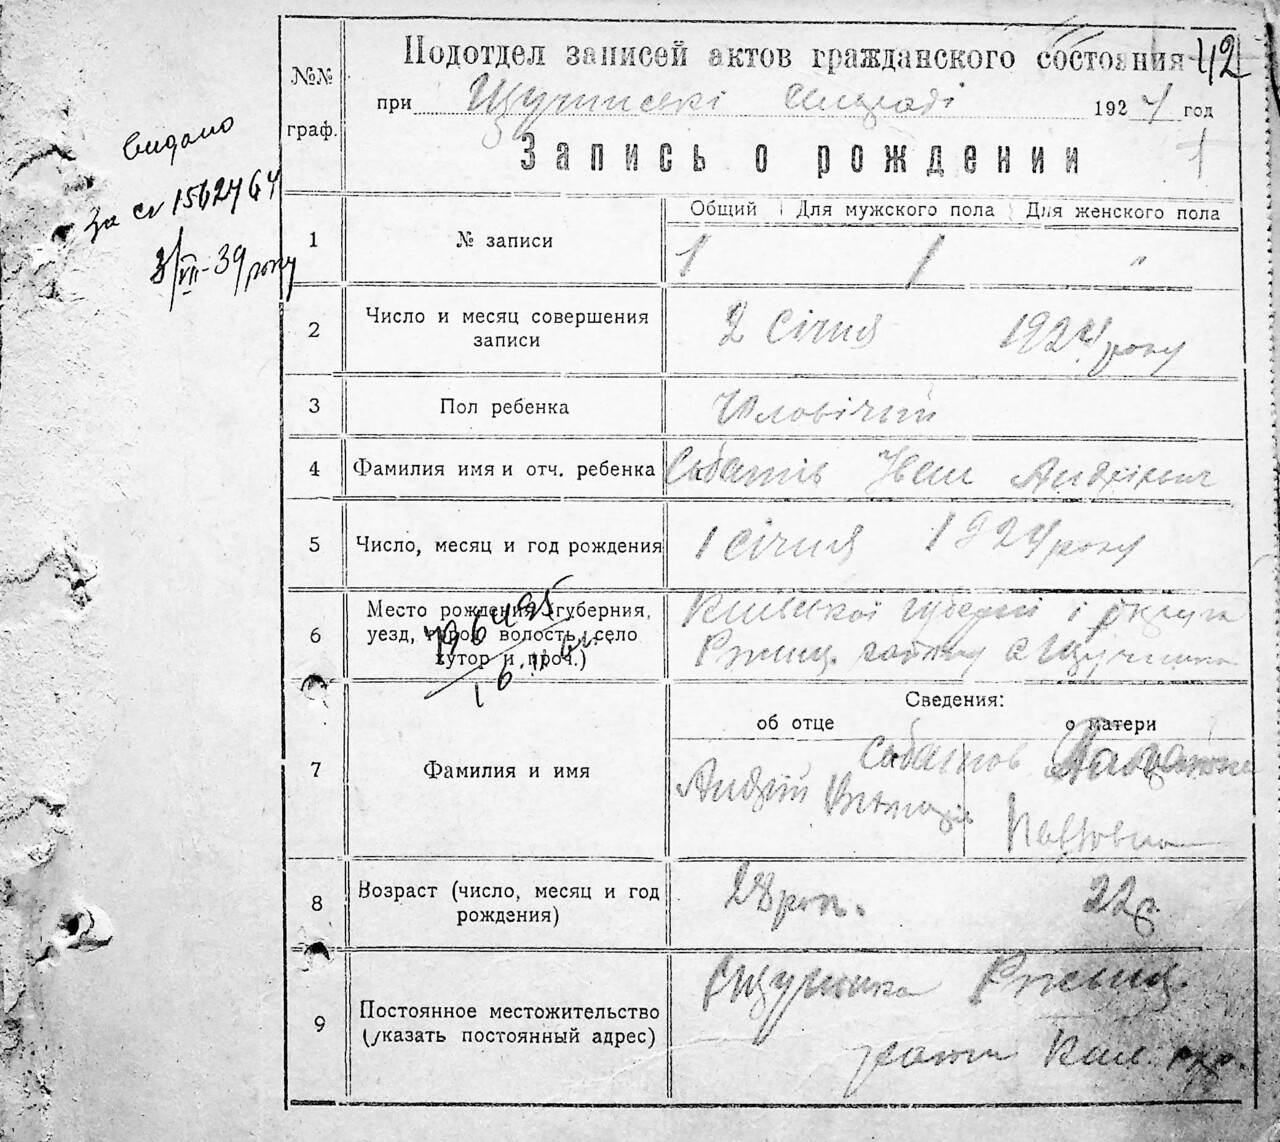 42
Подотдел записей актов гражданского состояния
№№ граф.
при Щучинскі сельраді 1924 год
1
Запись о рождении
Видано
за св 1562464
3/VII-39 року
Общий Для мужского пола Для женского пола
1 № записи 1 1 "
2 Число и месяц совершения записи 2 січня 1924 року
3 Пол ребенка Чоловічий
4 Фамилия имя и отч. ребенка Іван Андрієвич
5 Число, месяц и год рождения 1 січня 1924 року
6 Место рождения (губерния, уезд, город, волость, село хутор и проч.) Київської губернії і округа
Ржищ. району с Щучинка
Сведения:
об отце о матери
7 Фамилия и имя
Андрій
Павловна
8 Возраст (число, месяц и год рождения) 28 рок. 22 р.
9 Постоянное местожительство (указать постоянный адрес) Щучинка Ржищ.
Киів. окр.